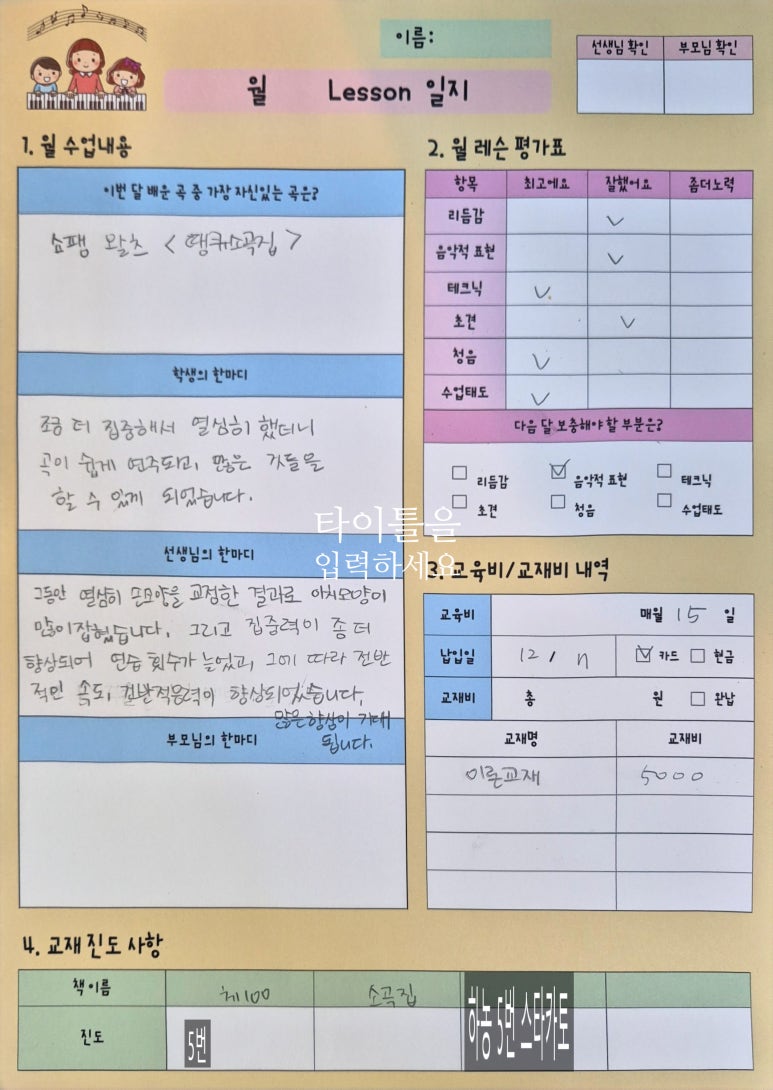 이름:
선생님 확인 부모님 확인
월 Lesson 일지
1. 월 수업내용
이번 달 배운 곡 중 가장 자신있는 곡은?
쇼팽 왈츠 < 땡큐소곡집 >
학생의 한마디
조금 더 집중해서 열심히 했더니
곡이 쉽게 연주되고, 많은 것들을
할 수 있게 되었습니다.
선생님의 한마디
그동안 열심히 손모양을 교정한 결과로 아치모양이
많이 잡혔습니다. 그리고 집중력이 좀 더
향상되어 연습 횟수가 늘었고, 그에 따라 전반
적인 속도, 건반적응력이 향상되었습니다.
많은 향상이 기대
됩니다.
부모님의 한마디
2. 월 레슨 평가표
항목 최고에요 잘했어요 좀더노력
리듬감
음악적 표현
테크닉
초견
청음
수업태도
다음 달 보충해야 할 부분은?
리듬감 음악적 표현 테크닉
초견 청음 수업태도
타이틀을
입력하세요
3. 교육비/교재비 내역
교육비 매월 15 일
납입일 12 / 카드 현금
교재비 총 원 완납
교재명 교재비
이론교재 5000
4. 교재 진도 사항
책이름 체100 소곡집 하농 5번 스타카토
진도 5번